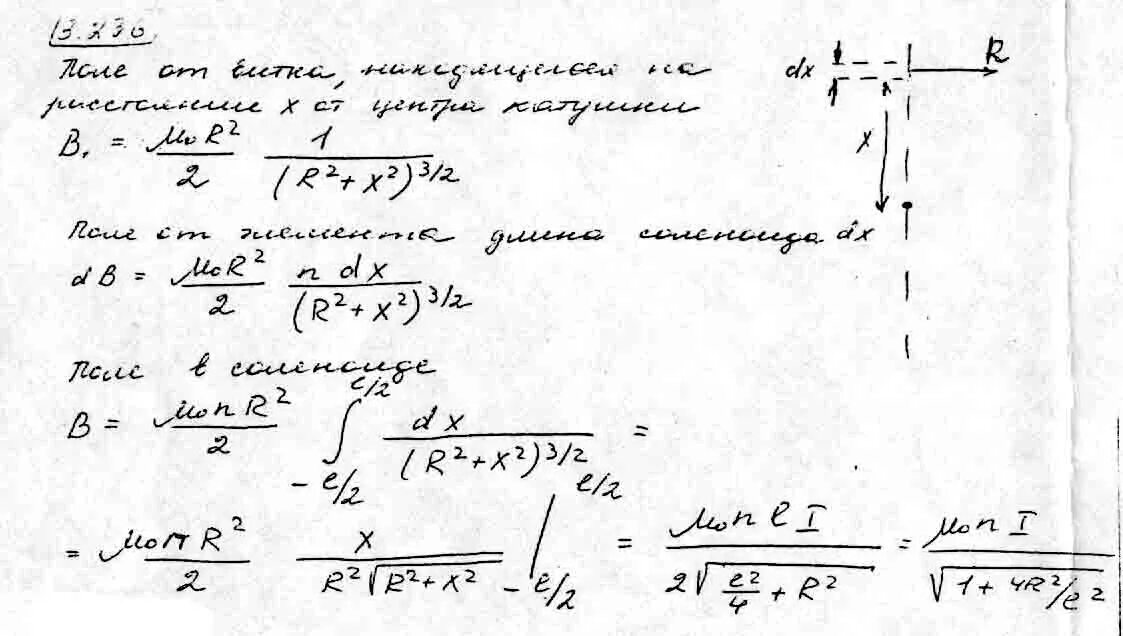 3.236.
Поле от витка, находящегося на
расстояние x от центра катушки
B₁ = μ₀R²/2 · 1/(R² + x²)^3/2
Поле от элемента длина соленоида dx
dB = μ₀R²/2 · n dx/(R² + x²)^3/2
Поле в соленоиде
B = μ₀nR²/2 ∫_{-ℓ/2}^{ℓ/2} dx/(R² + x²)^3/2 =
= μ₀nR²/2 · x/(R²√(R² + x²)) |_{-ℓ/2}^{ℓ/2} = μ₀nℓI/(2√(ℓ²/4 + R²)) = μ₀nI/√(1 + 4R²/ℓ²)
dx
R
x